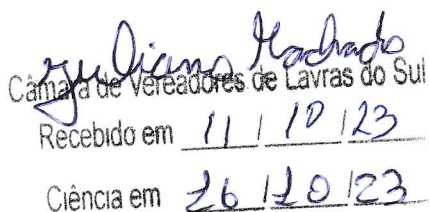 Juliano Machado
Câmara de Vereadores de Lavras do Sul
Recebido em 11 / 10 / 23
Ciência em 26 / 10 / 23